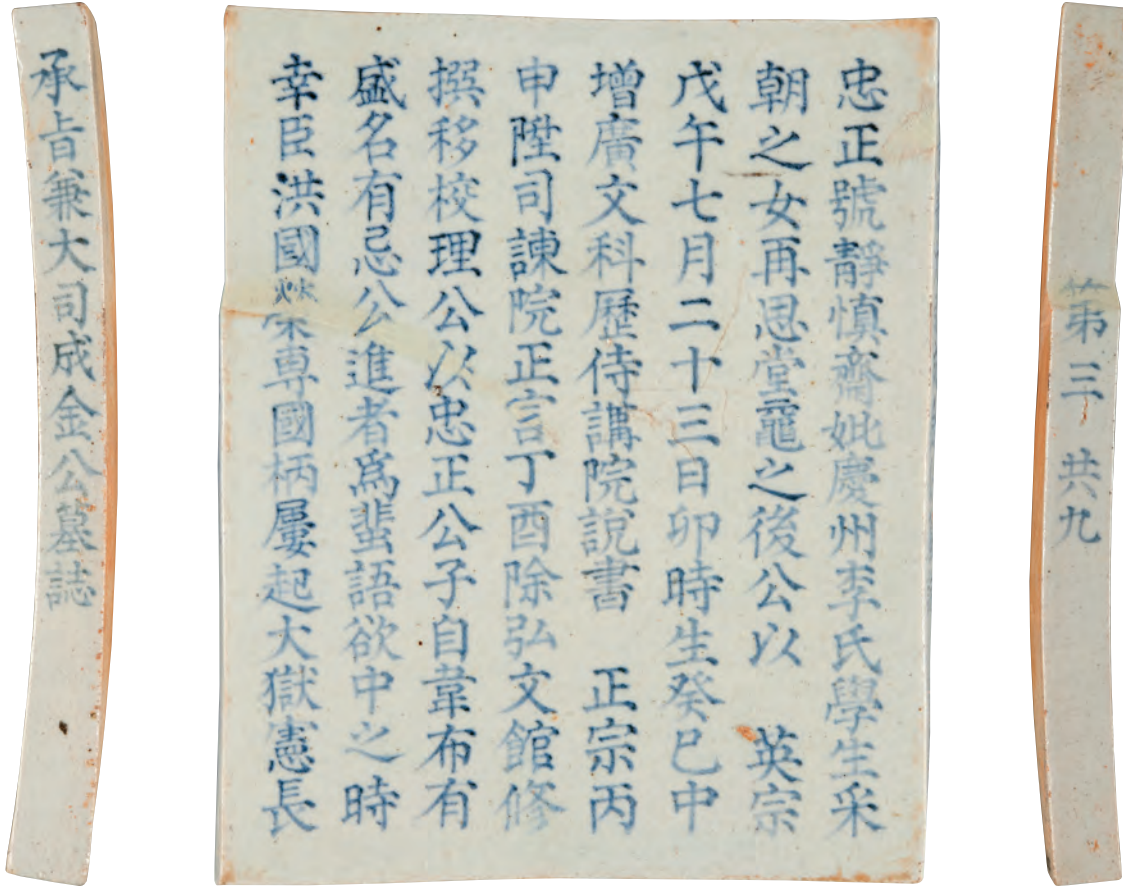 第三 共九
忠正號靜慎齋妣慶州李氏學生采
朝之女再思堂黿之後公以 英宗
戊午七月二十三日卯時生癸巳中
增廣文科歷侍講院說書 正宗丙
申陞司諫院正言丁酉除弘文館修
撰移校理公以忠正公子自韋布有
盛名有忌公進者爲蜚語欲中之時
幸臣洪國榮專國柄屢起大獄憲長
承旨兼大司成金公墓誌